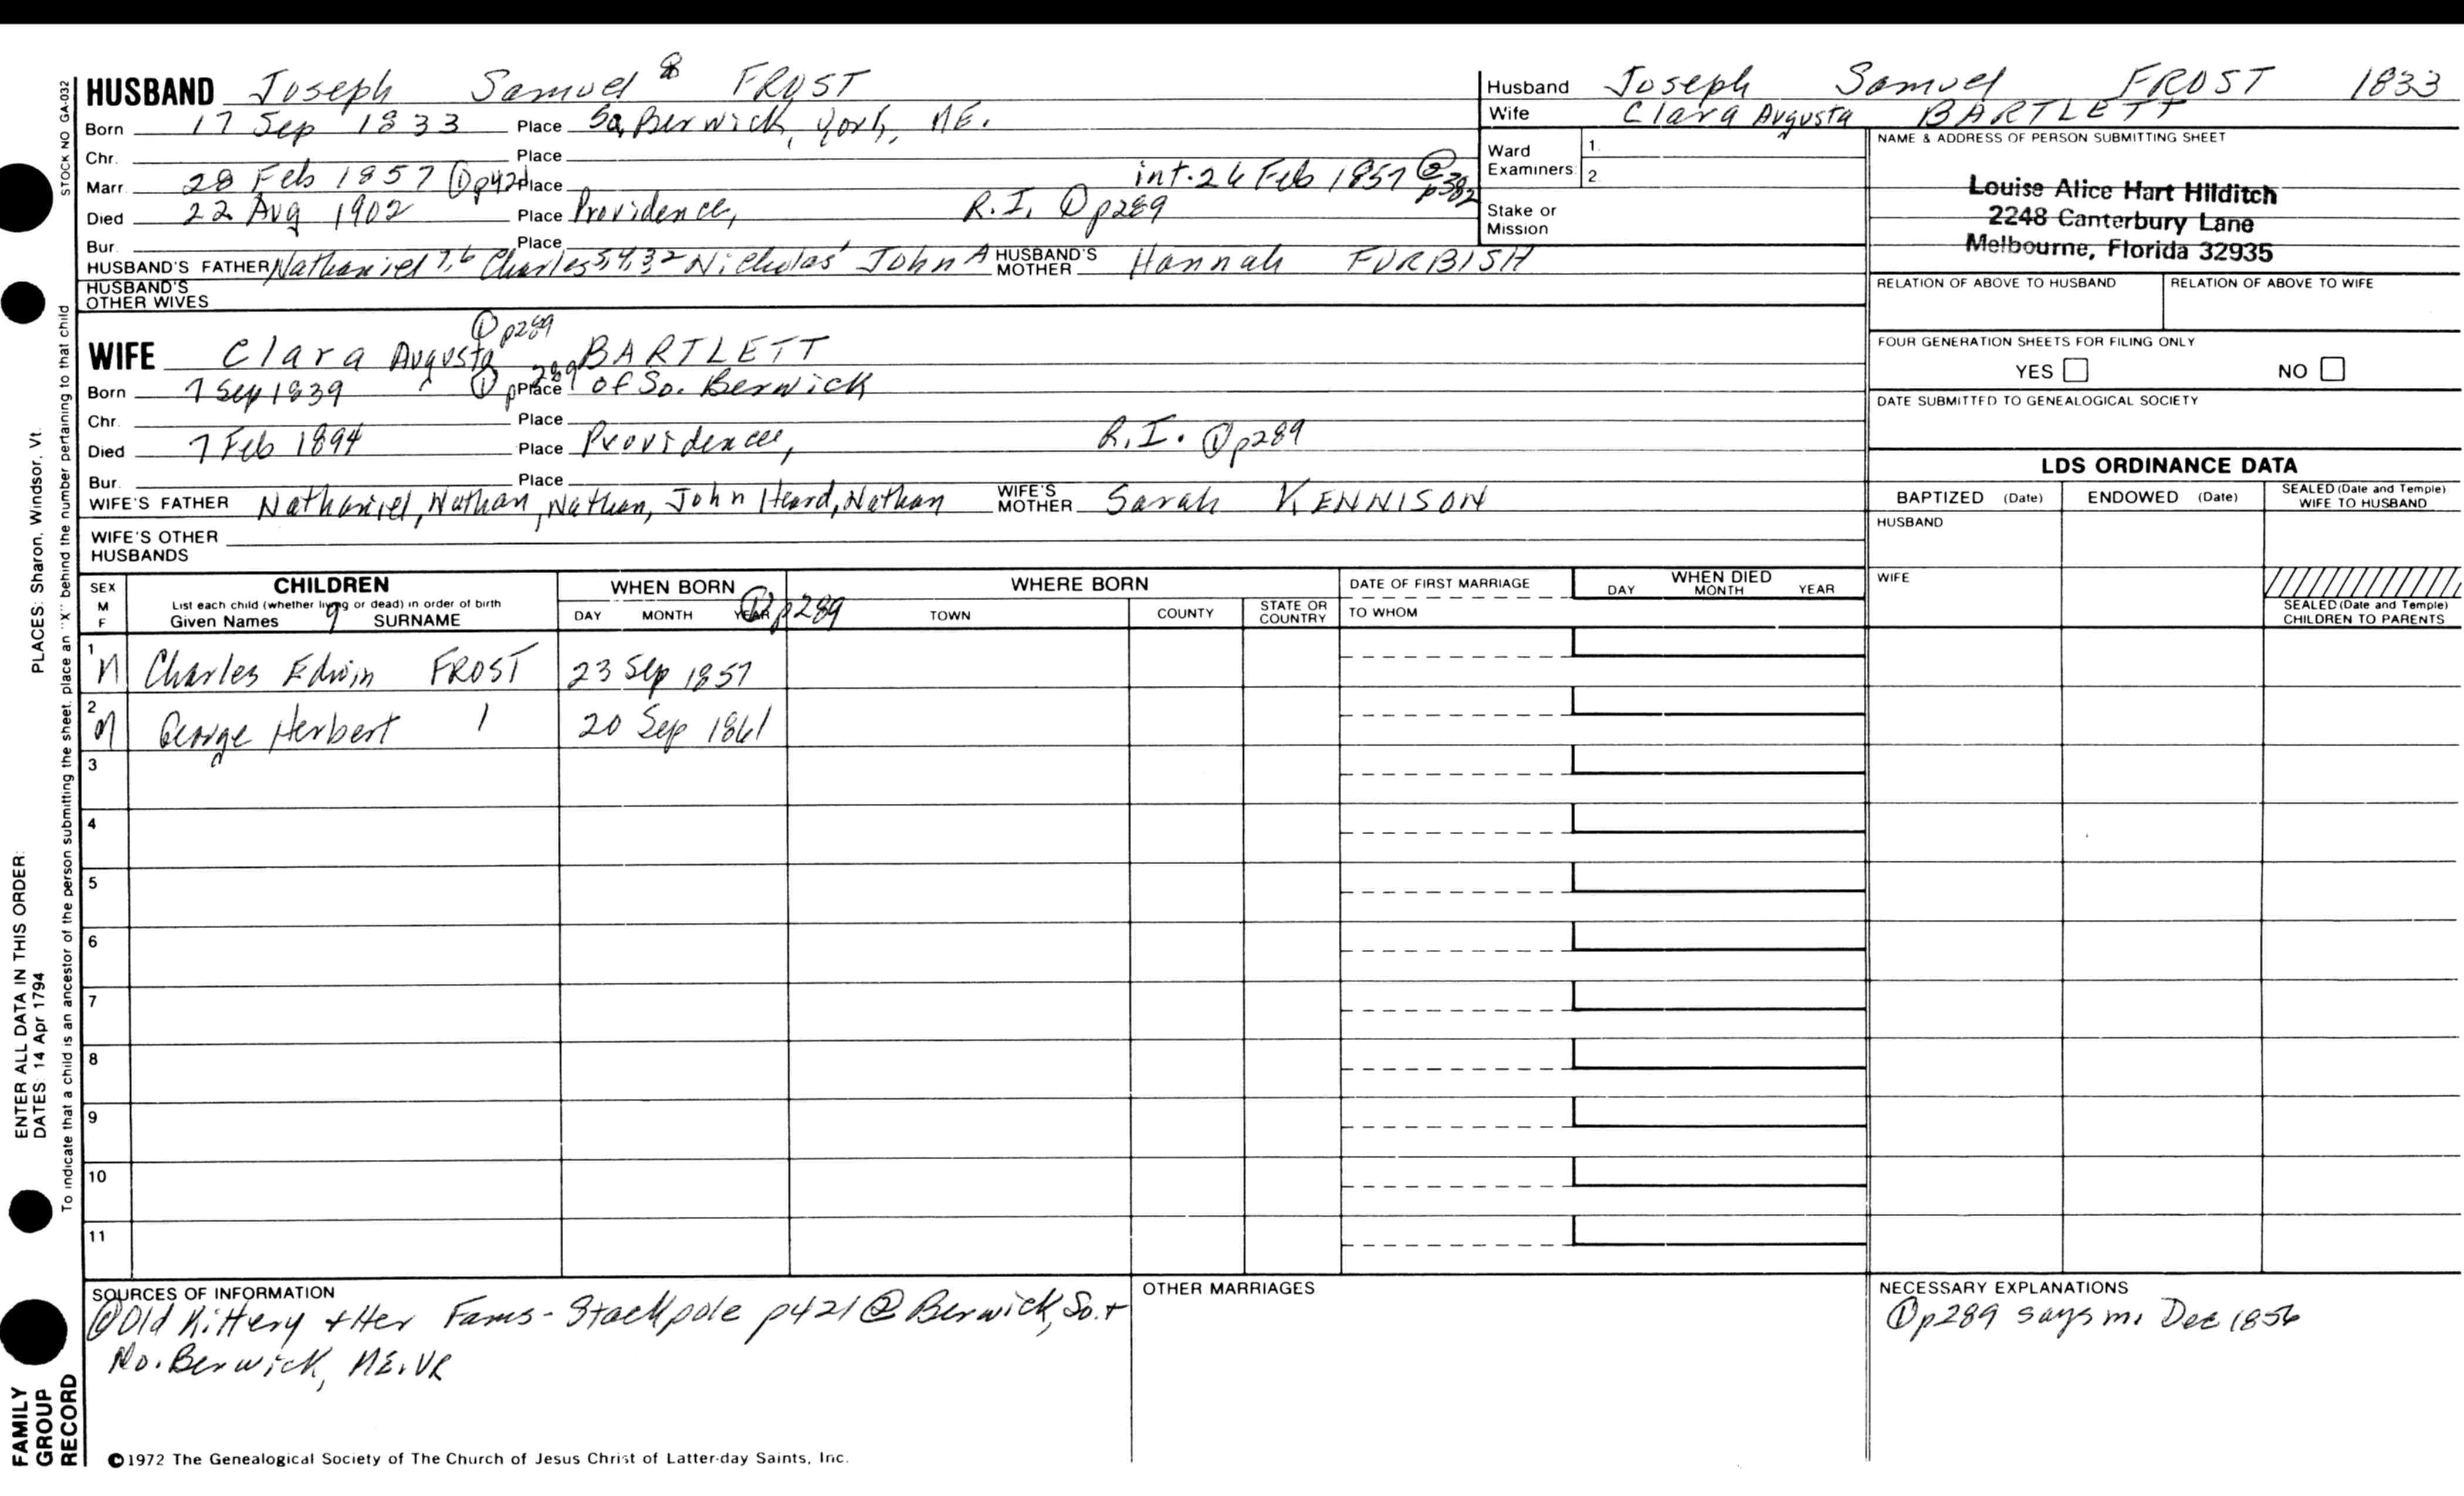 HUSBAND Joseph Samuel 8 FROST
Born 17 Sep 1833 Place So. Berwick, York, ME.
Chr. Place
Marr. 28 Feb 1857 ① p421 Place int. 26 Feb 1857 ② p382
Died 22 Aug 1902 Place Providence, R.I. ① p289
Bur. Place
HUSBAND'S FATHER Nathaniel 7,6 Charles 5,4,3,2 Nicholas 1 John A HUSBAND'S MOTHER Hannah FURBISH
HUSBAND'S OTHER WIVES
Husband Joseph Samuel FROST 1833
Wife Clara Augusta BARTLETT
Ward Examiners: 1. 2.
Stake or Mission
NAME & ADDRESS OF PERSON SUBMITTING SHEET
Louise Alice Hart Hilditch
2248 Canterbury Lane
Melbourne, Florida 32935
RELATION OF ABOVE TO HUSBAND RELATION OF ABOVE TO WIFE
FOUR GENERATION SHEETS FOR FILING ONLY
YES NO
DATE SUBMITTED TO GENEALOGICAL SOCIETY
① p289
WIFE Clara Augusta BARTLETT
Born 7 Sep 1839 ① p289 Place of So. Berwick
Chr. Place
Died 7 Feb 1894 Place Providence, R.I. ① p289
Bur. Place
WIFE'S FATHER Nathaniel, Nathan, Nathan, John Heard, Nathan WIFE'S MOTHER Sarah KENNISON
WIFE'S OTHER HUSBANDS
LDS ORDINANCE DATA
BAPTIZED (Date) ENDOWED (Date) SEALED (Date and Temple) WIFE TO HUSBAND
HUSBAND
WIFE
SEALED (Date and Temple) CHILDREN TO PARENTS
SEX M F
CHILDREN
List each child (whether living or dead) in order of birth
Given Names 9 SURNAME
WHEN BORN ① p289
DAY MONTH YEAR
WHERE BORN
TOWN COUNTY STATE OR COUNTRY
DATE OF FIRST MARRIAGE
TO WHOM
WHEN DIED
DAY MONTH YEAR
1 M Charles Edwin FROST 23 Sep 1857
2 M George Herbert 20 Sep 1861
3
4
5
6
7
8
9
10
11
SOURCES OF INFORMATION
① Old Kittery + Her Fams - Stackpole p421 ② Berwick, So. +
No. Berwick, ME. VR
OTHER MARRIAGES
NECESSARY EXPLANATIONS
① p289 says m. Dec 1856
©1972 The Genealogical Society of The Church of Jesus Christ of Latter-day Saints, Inc.
STOCK NO GA-032
To indicate that a child is an ancestor of the person submitting the sheet, place an "X" behind the number pertaining to that child
PLACES: Sharon, Windsor, Vt.
ENTER ALL DATA IN THIS ORDER:
DATES: 14 Apr 1794
FAMILY
GROUP
RECORD